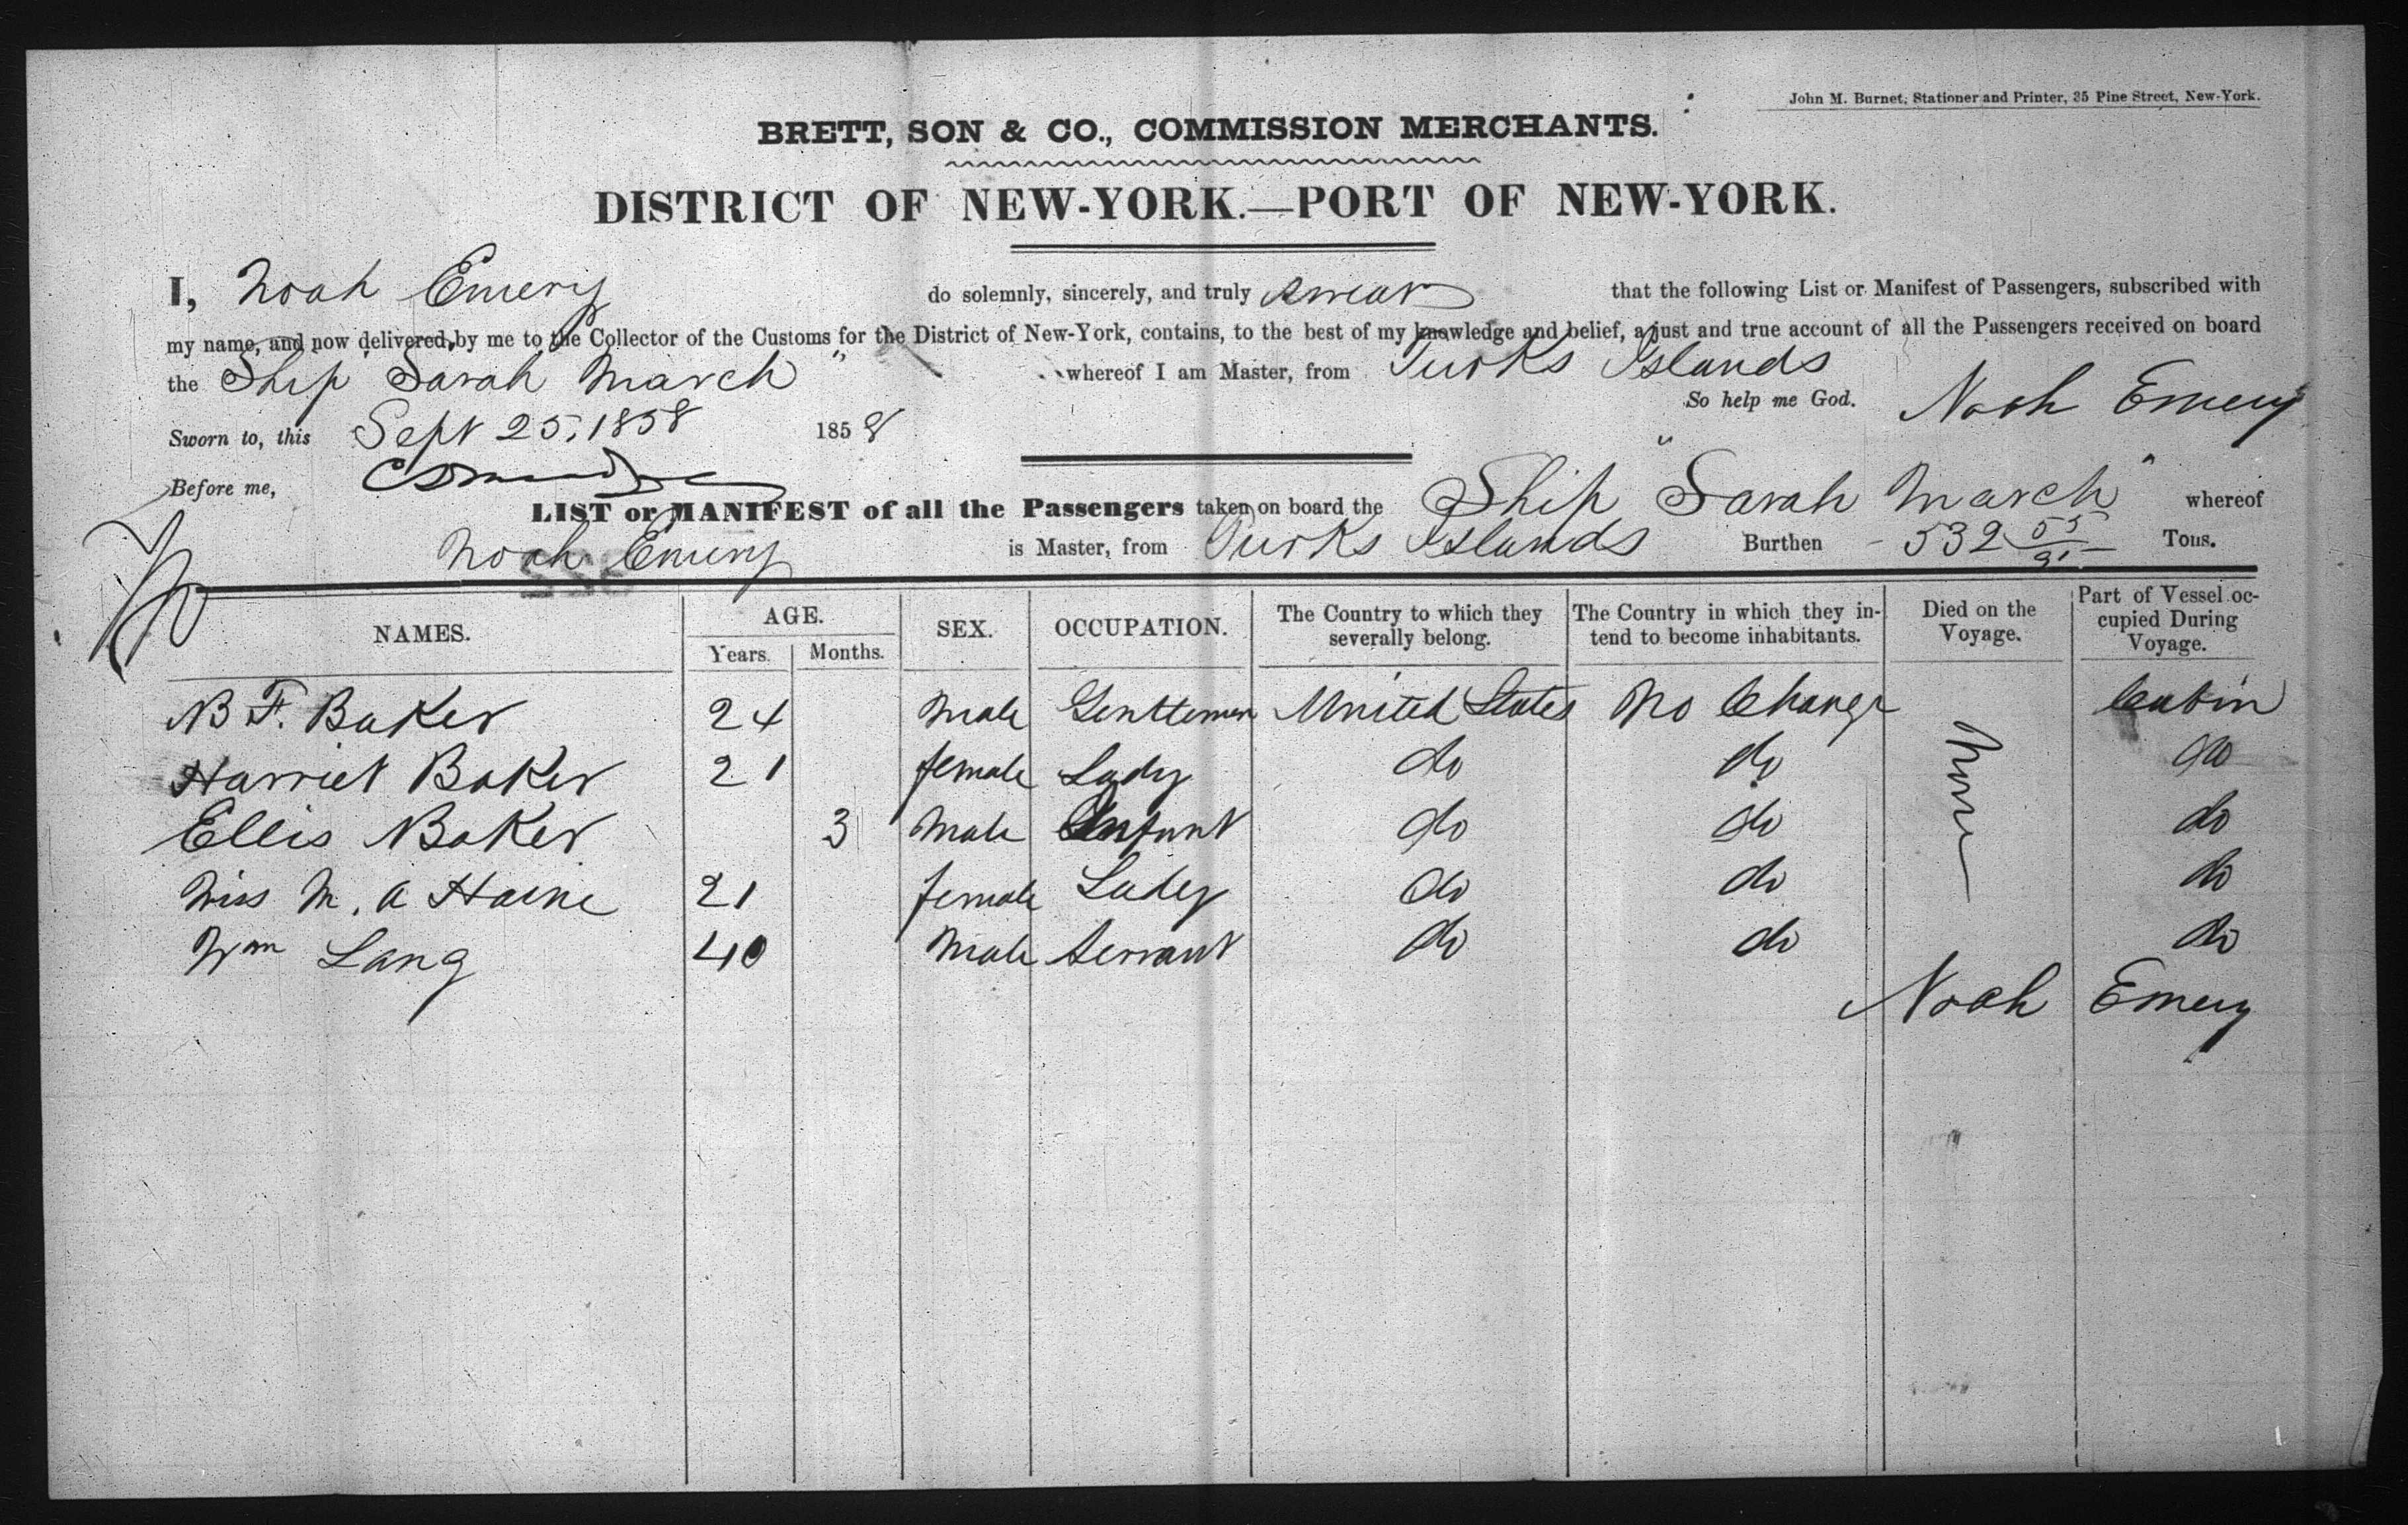 John M. Burnet, Stationer and Printer, 35 Pine Street, New-York.
BRETT, SON & CO., COMMISSION MERCHANTS.
DISTRICT OF NEW-YORK.—PORT OF NEW-YORK.
I, Noah Emery do solemnly, sincerely, and truly swear that the following List or Manifest of Passengers, subscribed with
my name, and now delivered by me to the Collector of the Customs for the District of New-York, contains, to the best of my knowledge and belief, a just and true account of all the Passengers received on board
the Ship "Sarah March" whereof I am Master, from Turks Islands
So help me God. Noah Emery
Sworn to, this Sept 25, 1858 1858
Before me,
LIST or MANIFEST of all the Passengers taken on board the Ship "Sarah March" whereof
Noah Emery is Master, from Turks Islands Burthen 532 55/95 Tons.
NAMES. AGE. Years. Months. SEX. OCCUPATION. The Country to which they severally belong. The Country in which they intend to become inhabitants. Died on the Voyage. Part of Vessel occupied During Voyage.
B F. Baker 24 Male Gentleman United States No Change None Cabin
Harriet Baker 21 female Lady do do do
Ellis Baker 3 Male Infant do do do
Miss M. A Haine 21 female Lady do do do
Wm Lang 40 Male Servant do do do
Noah Emery